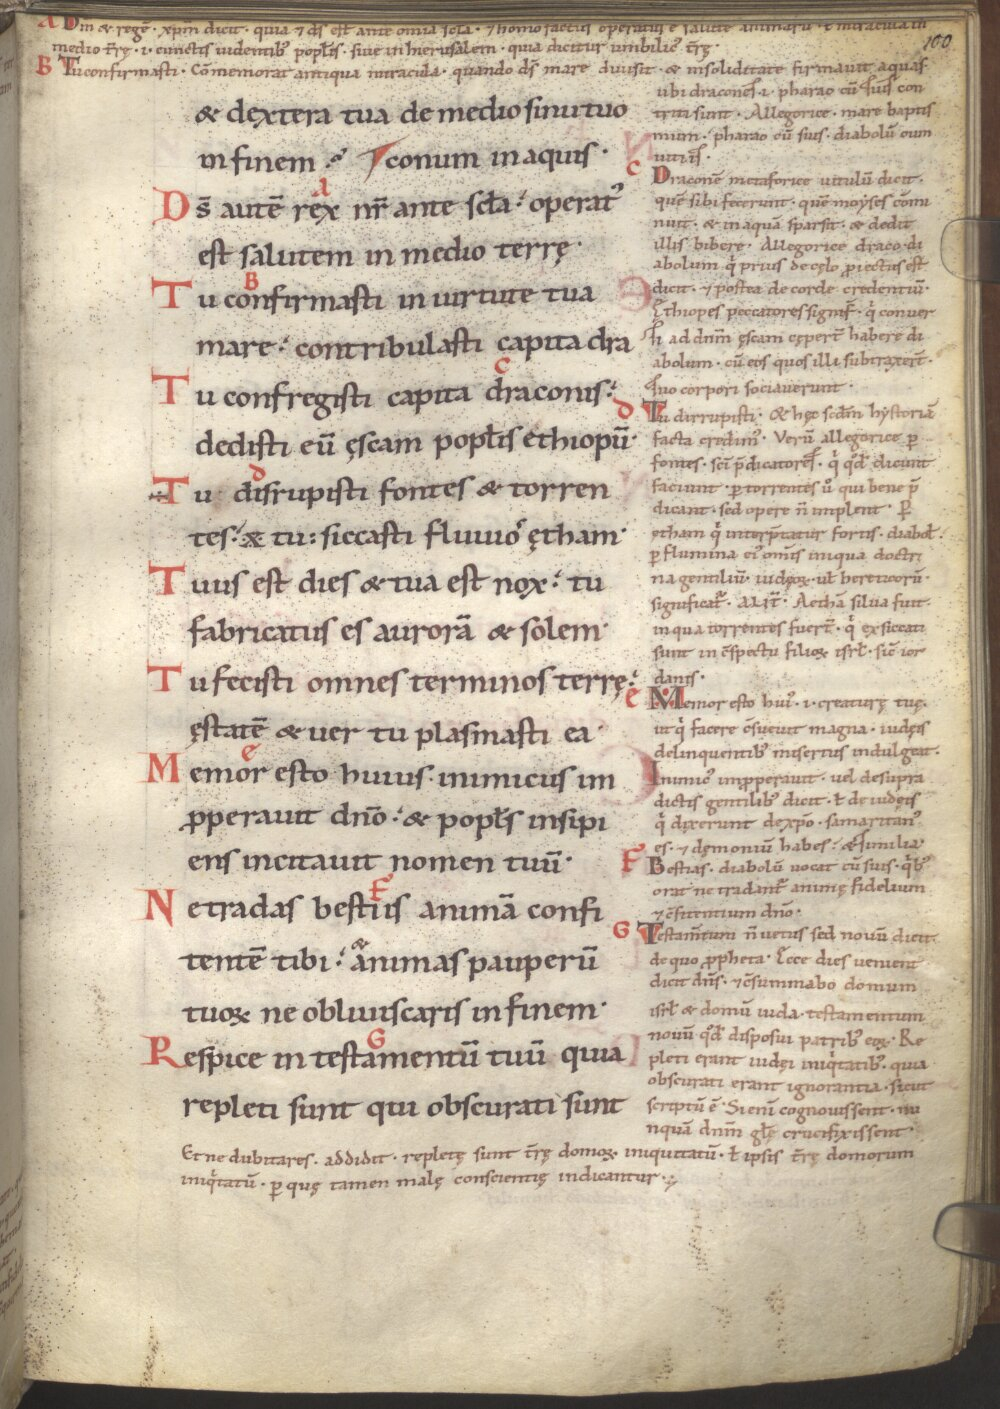 A Dm̄ & regē · xp̄m dicit · quia ⁊ ds̄ est ante omnia sc̄la · ⁊ homo factus operatus ē salutē animarū · ł miracula in
medio t̄rę · i · cunctis uidentibꝰ popl̄is · siue in hierusalem · quia dicitur umbilicꝰ t̄rę ·
B Tu confirmasti · Cōmemorat antiqua miracula · quando ds̄ mare diuisit · & in soliditate firmauit aquas ·
100
& dextera tua de medio sinu tuo
in finem · conum in aquis ·
A
Ds̄ autē rex nr̄ ante sc̄la : operatꝰ
est salutem in medio terrę ·
B
Tu confirmasti in uirtute tua
mare : contribulasti capita dra
C
Tu confregisti capita draconis :
dedisti eū ęscam popl̄is ethiopū ·
d
Tu disrupisti fontes & torren
tes : tu : siccasti fluuioꝰ ętham ·
Tuus est dies & tua est nox : tu
fabricatus es aurorā & solem ·
Tu fecisti omnes terminos terrę :
ęstatē & uer tu plasmasti ea ·
e
Memor esto huius · inimicus im
ꝓperauit dn̄o : & popl̄s insipi
ens incitauit nomen tuū ·
F
Ne tradas bestiis animā confi
tentē tibi : & animas pauperū
tuoꝝ ne obliuiscaris in finem ·
G
Respice in testamentū tuū quia
repleti sunt qui obscurati sunt
ubi dracones · i · pharao cū suis con
triti sunt · Allegorice · mare baptis
mum · pharao cū suis · diabolū cum
uitiis ·
C Draconē metaforice uitulū dicit ·
quē sibi fecerunt · quē moyses comi
nuit · & in aquā sparsit · & dedit
illis bibere · Allegorice draco · di
abolum q̇ prius de cęlo proiectus est
dicit · ⁊ postea de corde credentiū ·
Ęthiopes peccatores signif̄ · q̇ conuer
si ad dnm̄ ęscam cęper̄t habere di
abolum · cū eos quos illi subtraxer̄t ·
suo corpori sociauerunt ·
d Tu dirrupisti · & hęc scdm̄ hystoriā
facta credimꝰ · Verū allegorice p̱
fontes · sc̄i p̄dicatores · q̇ qd̄ dicunt
faciunt · p̱ torrentes u̇ qui bene p̄
dicant · sed opere n̄ implent · p̱
ętham q̇ interp̄tatur fortis · diabol ·
p̱ flumina eiꝰ om̄is iniqua doctri
na gentiliū · iudęoꝝ · ul̄ hereticorū ·
significat̄ · Alit̄ · Aethā silua fuit ·
in qua torrentes fuer̄t · q̇ exsiccati
sunt in cōspectu filioꝝ isrl̄ · sic̄ ior
danis ·
e Memor esto huiꝰ · i · creaturę tuę ·
ut q̇ facere cōsueuit magna · iudęis
delinquentibꝰ misertus indulgeat ·
Inimicꝰ imꝓperauit · uel de supra
dictis gentilibꝰ dicit · ł de iudęis
q̇ dixerunt de xp̄o · samaritanꝰ
es · ⁊ dęmonium habes : & similia ·
F Bestias · diabolū uocat cū suis · q̇bꝰ
orat ne tradant̄ animę fidelium
⁊ cōfitentium dn̄o ·
G Testam̄tum n̄ uetus sed nouū dicit ·
de quo ꝓpheta · Ecce dies uenient
dicit dn̄s · ⁊ cōsummabo domum
isrl̄ & domū iuda · testamentum
nouū qd̄ disposui patribꝰ eoꝝ · Re
pleti erant iudęi iniq̇tatibꝰ · quia
obscurati erant ignorantia · sicut
scriptū ē · Si enī cognouissent · nū
nquā dnm̄ gl̄ę crucifixissent ·
Et ne dubitares · addidit · repletę sunt t̄rę domoꝝ iniquitatū · ł ipsis t̄rę domorum
iniq̇tatū · p̱ quę tamen malę conscientię indicantur ·